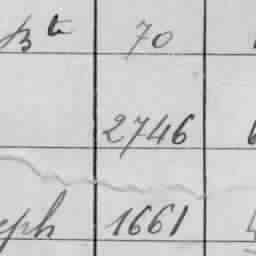 Bte 70
2746
eph 1661